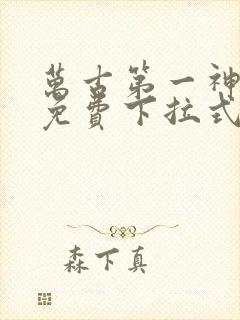 萬古第一神
免費下拉式
森下真